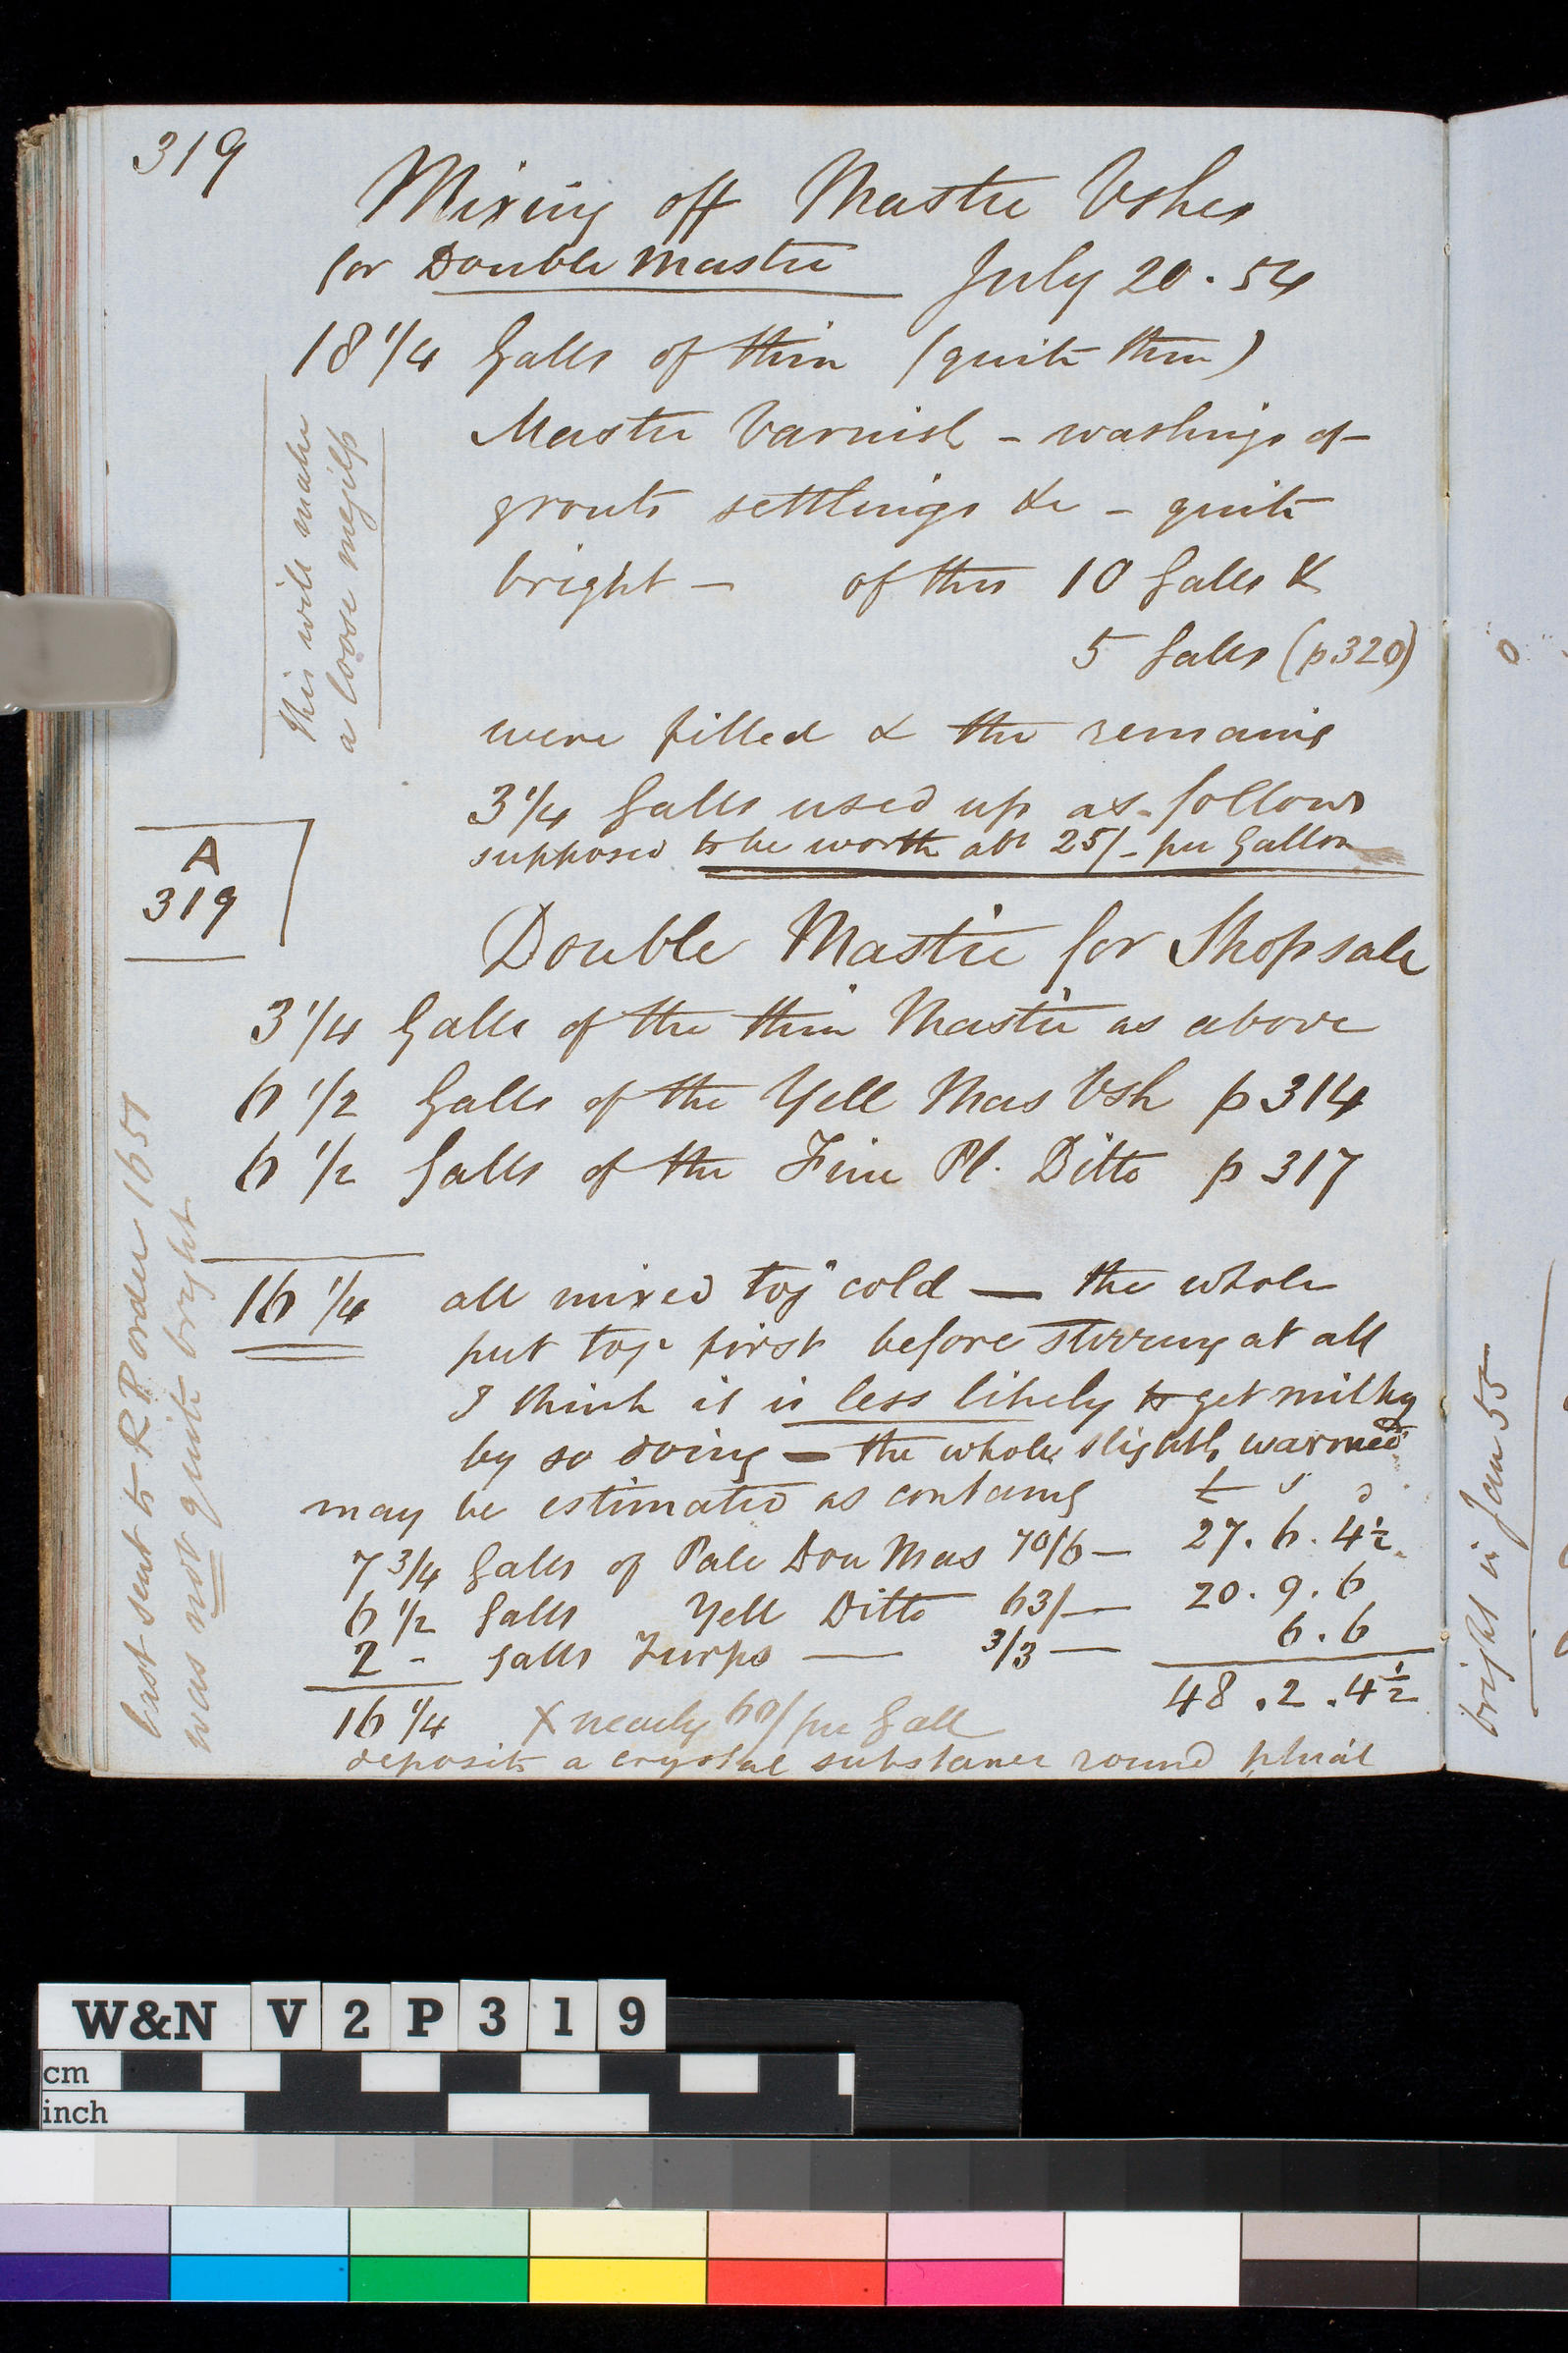 319
Mixing off Mastic Vshes
for Double Mastic July 20 . 54
18 1/4 Galls of thin (quite thin)
Mastic Varnish - washings of
grouts settlings &c - quite
bright - of this 10 Galls &
5 Galls (p 320)
were filled & the remaing
3 1/4 Galls used up as follows
supposed to be worth abt 25/- per Gallon
this will make
a loose megilp
A
319
Double Mastic for Shopsale
3 1/4 Galls of the thin Mastic as above
6 1/2 Galls of the Yell Mas Vsh p 314
6 1/2 Galls of the Fine Pl. Ditto p 317
16 1/4 all mixed togr cold — the whole
put togr first before stirring at all
I think it is less likely to get milky
by so doing — the whole slightly warmed
may be estimated as containg £ s d
7 3/4 Galls of Pale Dou Mas 70/6 — 27 . 6 . 4 1/2
6 1/2 Galls Yell Ditto 63/ — 20 . 9 . 6
2 - Galls Turps — 3/3 — 6 . 6
48 . 2 . 4 1/2
16 1/4 X nearly 60/ per Gall
deposits a crystal substance round phial
last sent to R P order 1651
was not quite bright
bright in Jan 55
W&N V 2 P 3 1 9
cm
inch